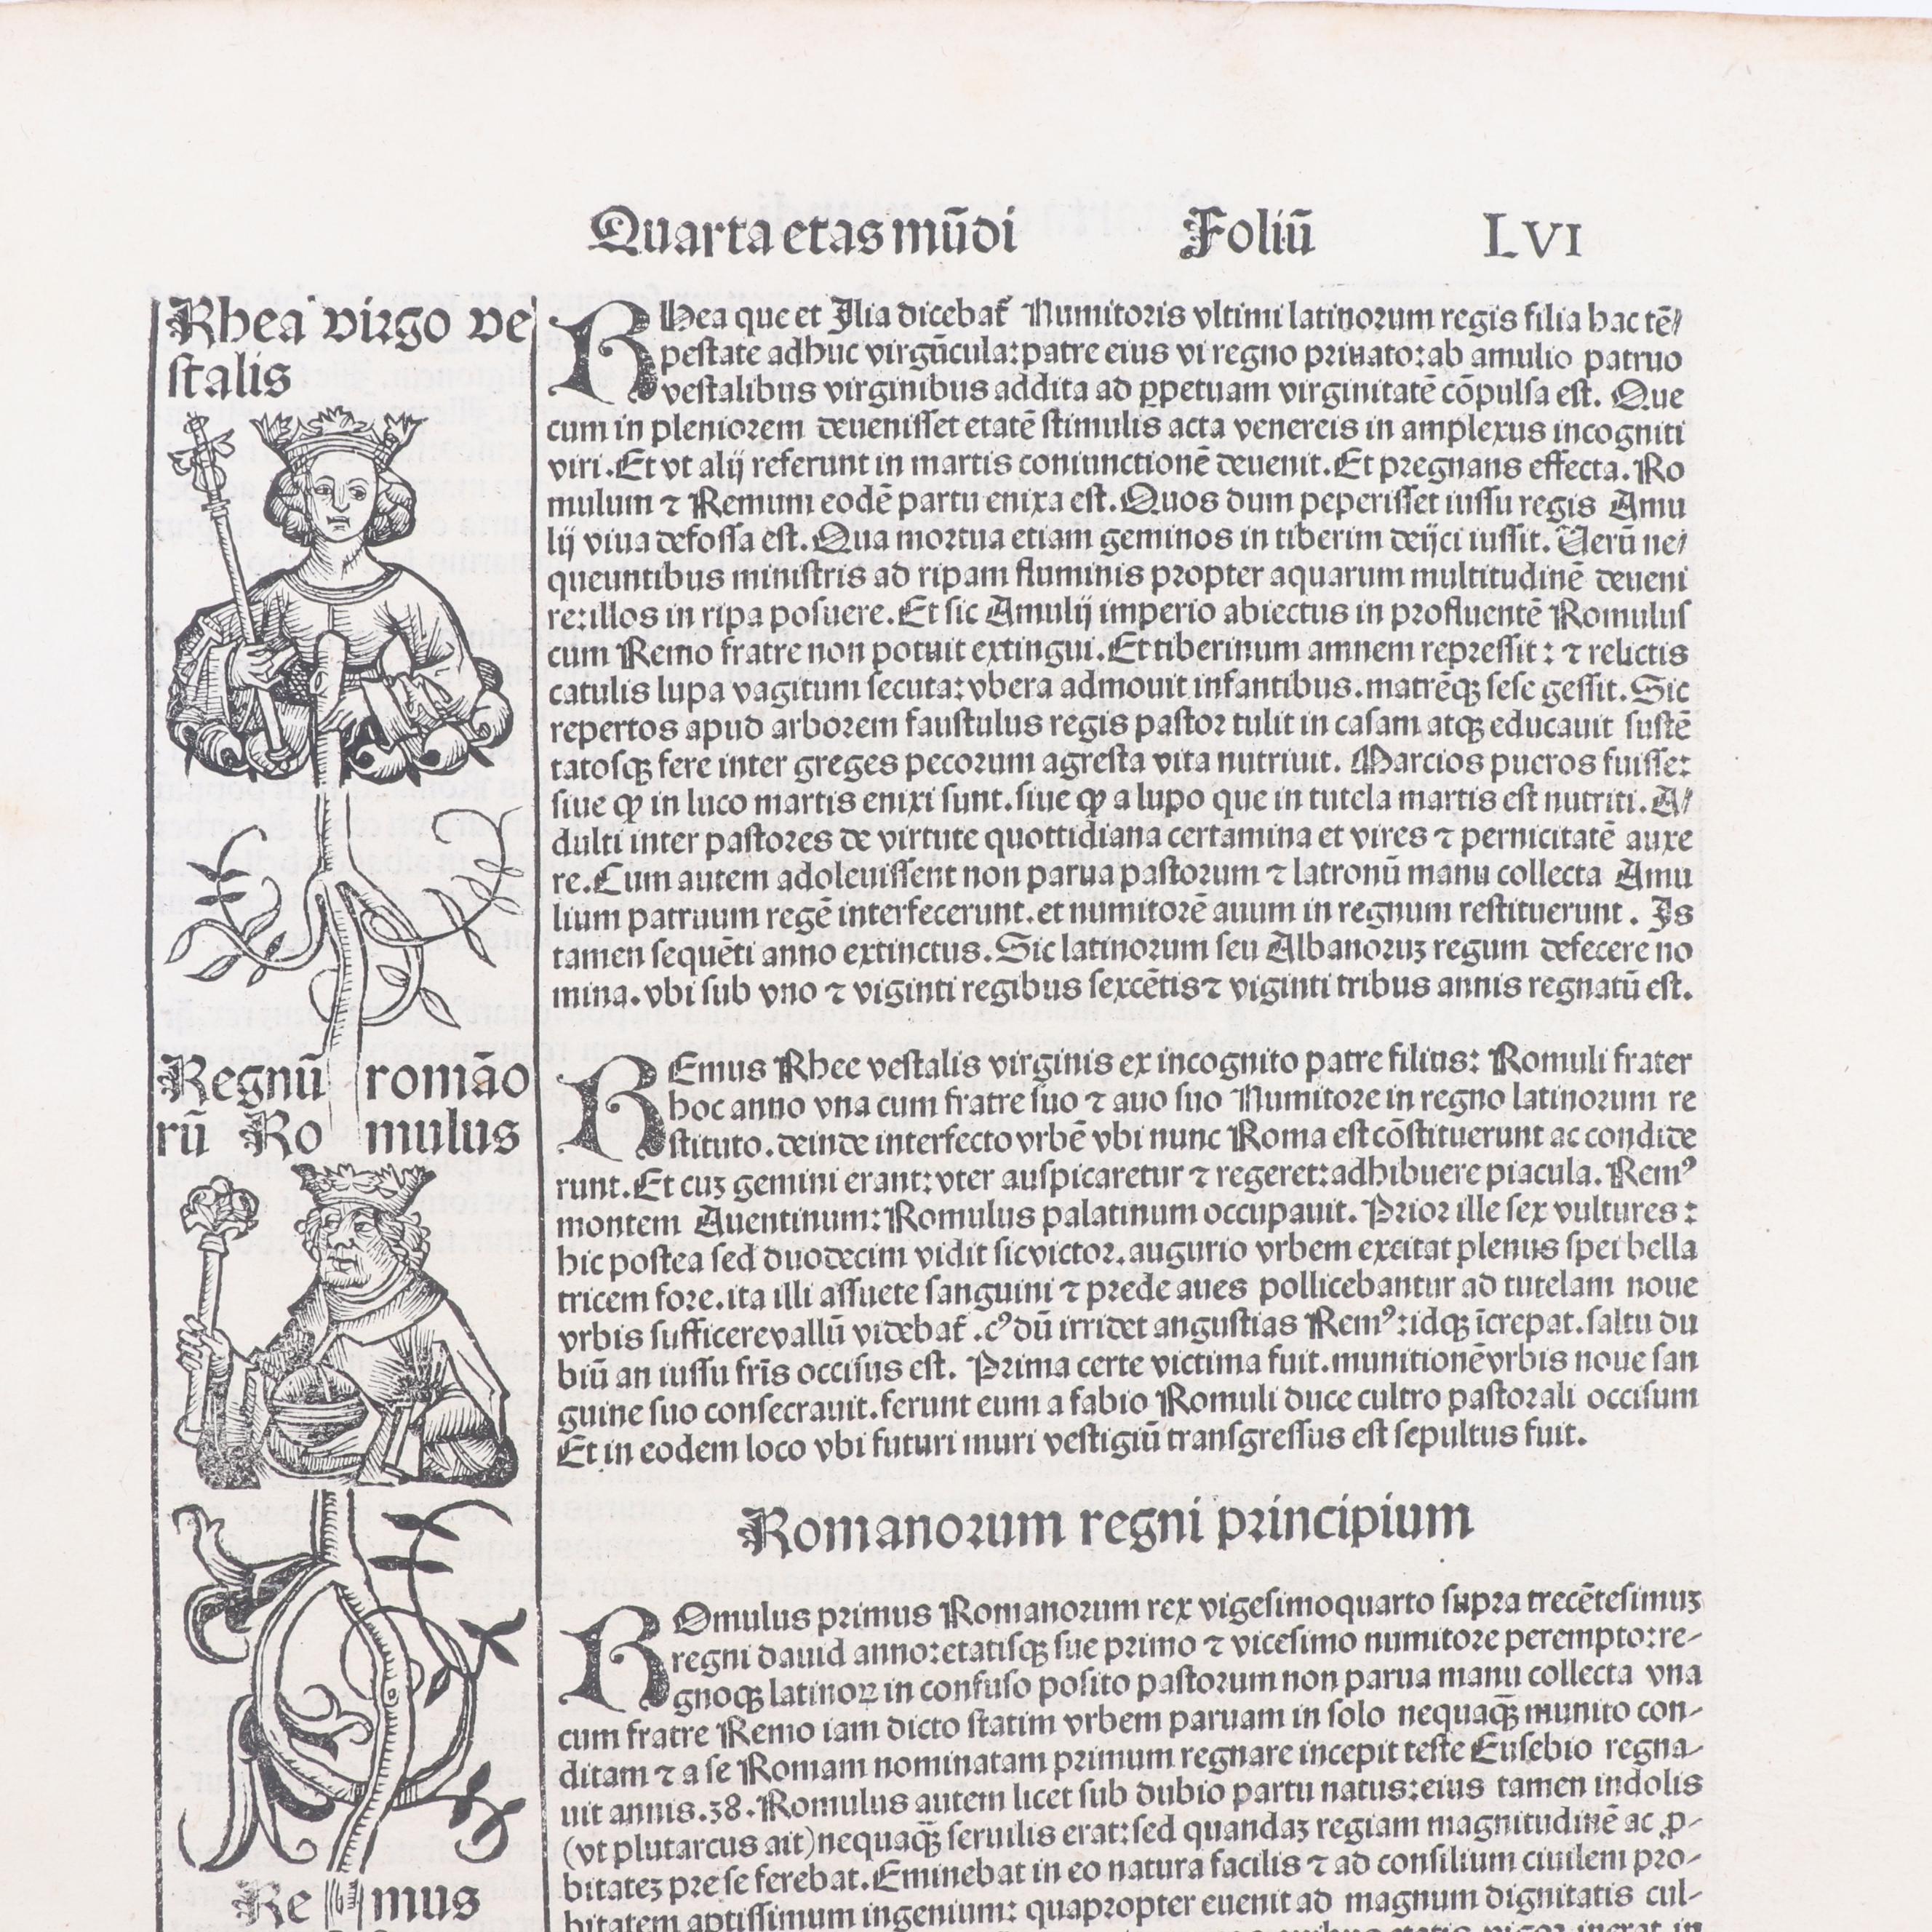 Quarta etas mũdi Foliũ LVI
Rhea virgo ve
stalis
RHea que et Ilia dicebat̃ Numitoris vltimi latinorum regis filia hac tẽ/
pestate adhuc virgũcula: patre eius vi regno priuato: ab amulio patruo
vestalibus virginibus addita ad ꝑpetuam virginitatẽ cõpulsa est. Que
cum in pleniorem deuenisset etatẽ stimulis acta venereis in amplexus incogniti
viri. Et vt alij referunt in martis coniunctionẽ deuenit. Et pregnans effecta. Ro
mulum ⁊ Remum eodẽ partu enixa est. Quos dum peperisset iussu regis Amu
lij viua defossa est. Qua mortua etiam geminos in tiberim deijci iussit. Verũ ne/
queuntibus ministris ad ripam fluminis propter aquarum multitudinẽ deueni
re: illos in ripa posuere. Et sic Amulij imperio abiectus in profluentẽ Romulus
cum Remo fratre non potuit extingui. Et tiberinum amnem repressit: ⁊ relictis
catulis lupa vagitum secuta: vbera admouit infantibus. matrẽqꝫ sese gessit. Sic
repertos apud arborem faustulus regis pastor tulit in casam atqꝫ educauit sustẽ
tatosqꝫ fere inter greges pecorum agresta vita nutriuit. Marcios pueros fuisse:
siue ꝙ in luco martis enixi sunt. siue ꝙ a lupo que in tutela martis est nutriti. A/
dulti inter pastores de virtute quottidiana certamina et vires ⁊ pernicitatẽ auxe
re. Cum autem adoleuissent non parua pastorum ⁊ latronũ manu collecta Amu
lium patruum regẽ interfecerunt. et numitorẽ auum in regnum restituerunt. Is
tamen sequẽti anno extinctus. Sic latinorum seu Albanoruꝫ regum defecere no
mina. vbi sub vno ⁊ viginti regibus sexcẽtis ⁊ viginti tribus annis regnatũ est.
Regnũ romão
rũ Romulus
REmus Rhee vestalis virginis ex incognito patre filius: Romuli frater
hoc anno vna cum fratre suo ⁊ auo suo Numitore in regno latinorum re
stituto. deinde interfecto vrbẽ vbi nunc Roma est cõstituerunt ac condide
runt. Et cuꝫ gemini erant: vter auspicaretur ⁊ regeret: adhibuere piacula. Remꝰ
montem Auentinum: Romulus palatinum occupauit. Prior ille sex vultures:
hic postea sed duodecim vidit sic victor. augurio vrbem excitat plenus spei bella
tricem fore. ita illi assuete sanguini ⁊ prede aues pollicebantur ad tutelam noue
vrbis sufficere vallũ videbat̃. cꝰ dũ irridet angustias Remꝰ: idqꝫ ĩcrepat. saltu du
biũ an iussu fr̃is occisus est. Prima certe victima fuit. munitionẽ vrbis noue san
guine suo consecrauit. ferunt eum a fabio Romuli duce cultro pastorali occisum
Et in eodem loco vbi futuri muri vestigiũ transgressus est sepultus fuit.
Romanorum regni principium
ROmulus primus Romanorum rex vigesimoquarto supra trecẽtesimuꝫ
regni dauid anno: etatisqꝫ sue primo ⁊ vicesimo numitore perempto: re-
gnoqꝫ latinoꝝ in confuso posito pastorum non parua manu collecta vna
cum fratre Remo iam dicto statim vrbem paruam in solo nequaq̃ꝫ munito con-
ditam ⁊ a se Romam nominatam primum regnare incepit teste Eusebio regna-
uit annis. 38. Romulus autem licet sub dubio partu natus: eius tamen indolis
(vt plutarcus ait) nequaq̃ꝫ seruilis erat: sed quandaꝫ regiam magnitudinẽ ac ꝓ-
bitateꝫ pre se ferebat. Eminebat in eo natura facilis ⁊ ad consilium ciuilem pro-
bitatem aptissimum ingenium: quapropter euenit ad magnum dignitatis cul-
Remus